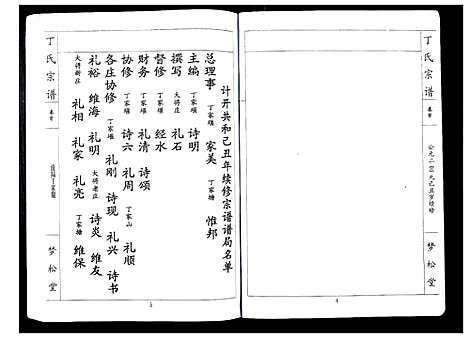 丁氏宗谱
卷首
公元二〇〇九己丑岁续修
梦松堂
计开共和己丑年续修宗谱谱局名单
总理事 丁家堰 家美 丁家塘 惟邦
主编 丁家堰 诗明
撰写 大蒋庄 礼石
督修 丁家堰 经水
财务 丁家堰 礼清 诗颂
协修 丁家堰 诗六 礼周 丁家山 礼顺
各庄协修 丁家堰 礼刚 诗现 礼兴 诗书
礼裕 维海 礼明 大蒋老庄 诗炎 维友
大蒋新庄 礼相 礼家 礼亮 丁家塘 维保
丁氏宗谱
卷首
梦松堂
5